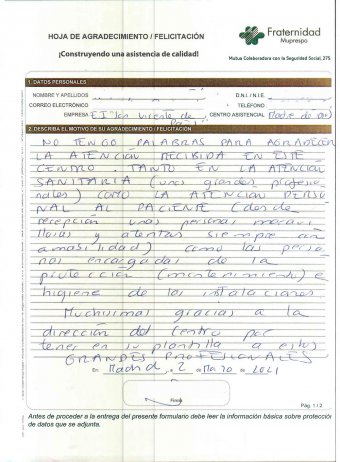 HOJA DE AGRADECIMIENTO / FELICITACIÓN
¡Construyendo una asistencia de calidad!
Fraternidad
Muprespa
Mutua Colaboradora con la Seguridad Social, 275
1. DATOS PERSONALES
NOMBRE Y APELLIDOS
D.N.I. / N.I.E.
CORREO ELECTRÓNICO
TELEFONO
EMPRESA
CENTRO ASISTENCIAL Madre de Dios
2. DESCRIBA EL MOTIVO DE SU AGRADECIMIENTO / FELICITACIÓN
NO TENGO PALABRAS PARA AGRADECER
LA ATENCIÓN RECIBIDA EN ESTE
CENTRO. TANTO EN LA ATENCIÓN
SANITARIA (unos grandes profesio
nales) como LA ATENCION PERSO
NAL AL PACIENTE (desde
recepción unas personas maravi
llosas y atentas siempre con
amabilidad) como las perso
nas encargadas de la
protección (mantenimiento) e
higiene de las instalaciones
Muchísimas gracias a la
dirección del centro por
tener en su plantilla a estos
GRANDES PROFESIONALES
En Madrid, 2 Marzo 2021
Firma
Pág. 1 / 2
Antes de proceder a la entrega del presente formulario debe leer la información básica sobre protección
de datos que se adjunta.